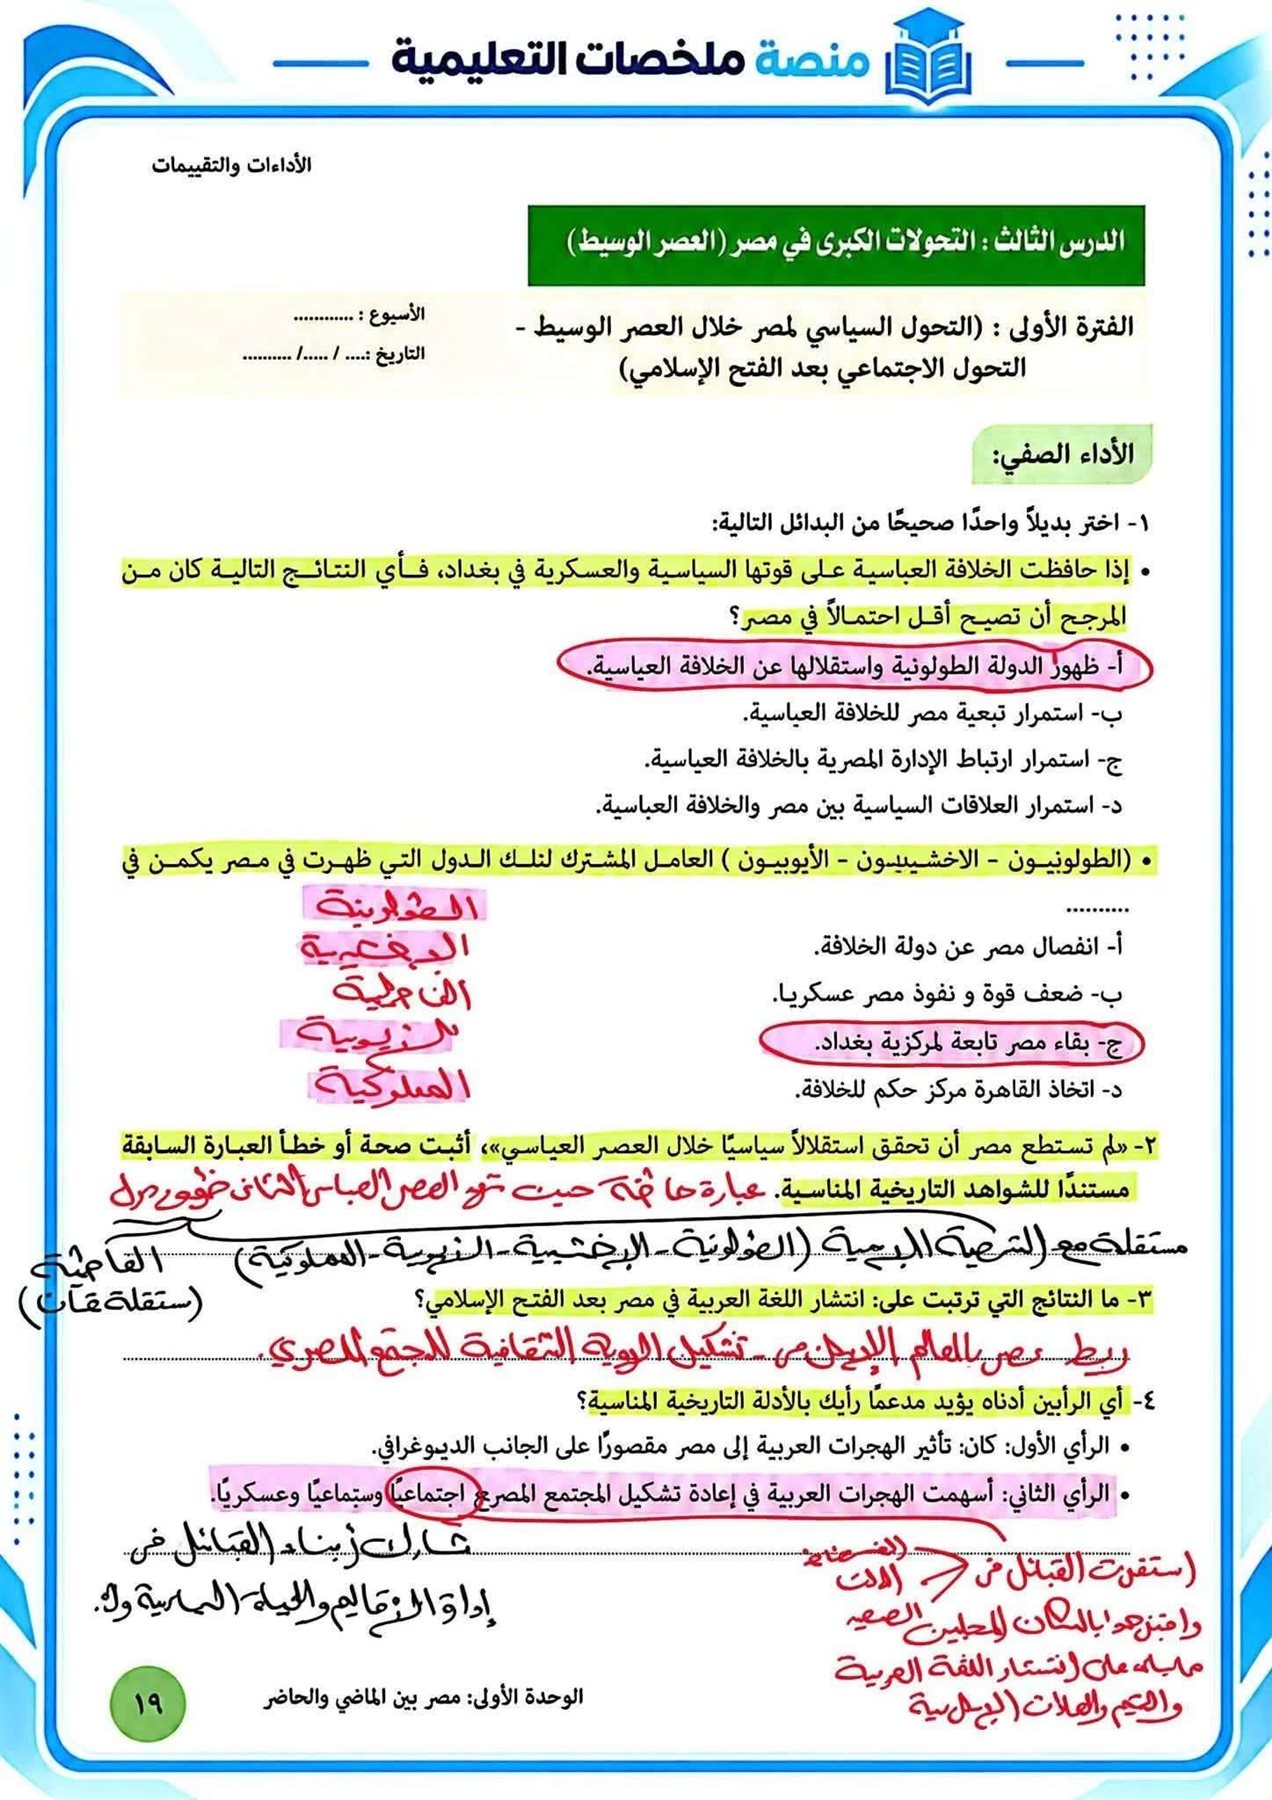 منصة ملخصات التعليمية
الأداءات والتقييمات
الدرس الثالث : التحولات الكبرى في مصر (العصر الوسيط)
الفترة الأولى : (التحول السياسي لمصر خلال العصر الوسيط -
التحول الاجتماعي بعد الفتح الإسلامي)
الأسبوع : ............
التاريخ :.... / ...../ ..........
الأداء الصفي:
١- اختر بديلاً واحدًا صحيحًا من البدائل التالية:
• إذا حافظت الخلافة العباسية على قوتها السياسية والعسكرية في بغداد، فأي النتائج التالية كان من
المرجح أن تصبح أقل احتمالاً في مصر؟
أ- ظهور الدولة الطولونية واستقلالها عن الخلافة العباسية.
ب- استمرار تبعية مصر للخلافة العباسية.
ج- استمرار ارتباط الإدارة المصرية بالخلافة العباسية.
د- استمرار العلاقات السياسية بين مصر والخلافة العباسية.
• (الطولونيون - الاخشيديون - الأيوبيون ) العامل المشترك لتلك الدول التي ظهرت في مصر يكمن في
..........
الطولونية
أ- انفصال مصر عن دولة الخلافة.
الإخشيدية
ب- ضعف قوة و نفوذ مصر عسكريا.
الفاطمية
ج- بقاء مصر تابعة لمركزية بغداد.
الأيوبية
د- اتخاذ القاهرة مركز حكم للخلافة.
المملوكية
٢- «لم تستطع مصر أن تحقق استقلالاً سياسيًا خلال العصر العباسي»، أثبت صحة أو خطأ العبارة السابقة
مستندًا للشواهد التاريخية المناسبة. عبارة خاطئة حيث شهد العصر العباسي الثاني ظهور دول
مستقلة مع التبعية الاسمية (الطولونية - الإخشيدية - الأيوبية - المملوكية) الفاطمية
(مستقلة تمامًا)
٣- ما النتائج التي ترتبت على: انتشار اللغة العربية في مصر بعد الفتح الإسلامي؟
ربط مصر بالعالم الإسلامي - تشكيل الهوية الثقافية للمجتمع المصري.
٤- أي الرأيين أدناه يؤيد مدعمًا رأيك بالأدلة التاريخية المناسبة؟
• الرأي الأول: كان: تأثير الهجرات العربية إلى مصر مقصورًا على الجانب الديموغرافي.
• الرأي الثاني: أسهمت الهجرات العربية في إعادة تشكيل المجتمع المصري اجتماعيًا وسياسيًا وعسكريًا.
استقرت القبائل في الفسطاط
الدلتا
الصعيد
وامتزجوا بالسكان المحليين
على انتشار اللغة العربية
والقيم والعادات الإسلامية
شارك أبناء القبائل في
إدارة الأقاليم والحياة السياسية
الوحدة الأولى: مصر بين الماضي والحاضر
١٩